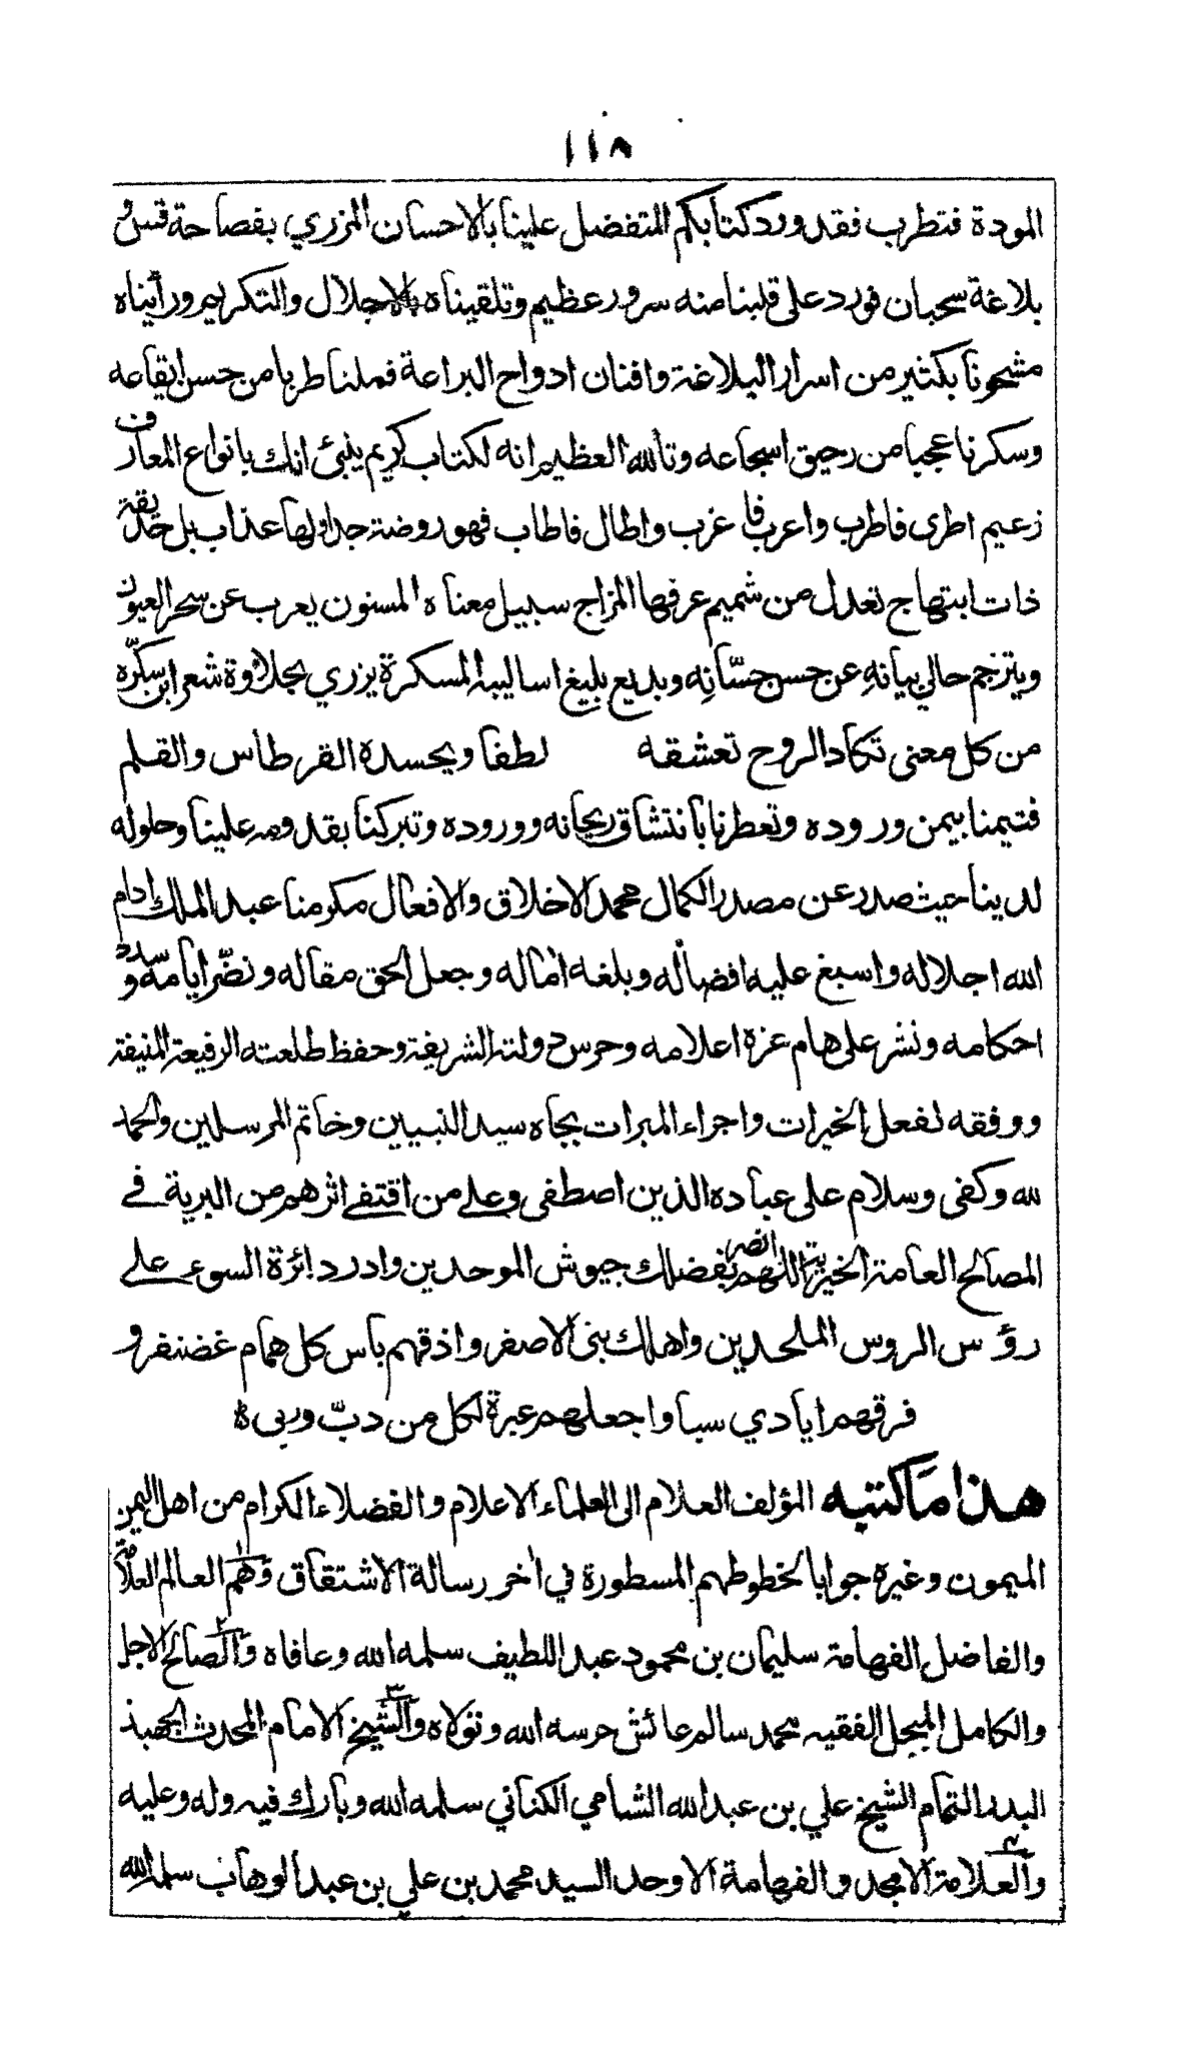 ١١٨
المودة فتطرب فقد ورد كتابكم المتفضل علينا بالاحسان المزري بفصاحة قس و
بلاغة سحبان فورد على قلبنا منه سرور عظيم وتلقيناه بالاجلال والتكريم ورأيناه
مشحونا بكثير من اسرار البلاغة وافنان ادواح البراعة فملنا طربا من حسن ايقاعه
وسكرنا عجبا من رحيق اسجاعه وتالله العظيم انه لكتاب كريم ينبئ انك بانواع المعارف
زعيم اطرى فاطرب واعرب فاغرب واطال فاطاب فهو روضة جداولها عذاب بل حديقة
ذات ابتهاج تعدل من شميم عرفها المزاج سبيل معناه المسنون يعرب عن سحر العيون
ويترجم حالي بيانه عن حسن حسّانه وبديع بليغ اساليبه المسكرة يزري بحلاوة شعر ابن سكّره
من كل معنى تكاد الروح تعشقه لطفا ويحسده القرطاس والقلم
فتيمنا بيمن وروده وتعطرنا بانتشاق ريحانه ووروده وتبركنا بقدومه علينا وحلوله
لدينا حيث صدر عن مصدر الكمال محمد الاخلاق والافعال مكرمنا عبد الملك ادام
الله اجلاله واسبغ عليه افضاله وبلغه اماله وجعل الحق مقاله ونضّر ايامه وسدد
احكامه ونشر على هام عزة اعلامه وحرس دولته الشريفة وحفظ طلعته الرفيعة المنيفة
ووفقه لفعل الخيرات واجراء المبرات بجاه سيد النبيين وخاتم المرسلين والحمد
لله وكفى وسلام على عباده الذين اصطفى وعلى من اقتفى اثرهم من البرية في
المصالح العامة الخيرية اللهم انصر بفضلك جيوش الموحدين وادر دائرة السوء على
رؤس الروس الملحدين واهلك بني الاصفر واذقهم باس كل همام غضنفر و
فرقهم ايادي سبا واجعلهم عبرة لكل من دبّ وربى ه
هذا ما كتبه المؤلف العلام الى العلماء الاعلام والفضلاء الكرام من اهل اليمن
الميمون وغيره جوابا لخطوطهم المسطورة في اخر رسالة الاشتقاق وهم العالم العلامة
والفاضل الفهامة سليمان بن محمود عبد اللطيف سلمه الله وعافاه والصالح الاجل
والكامل المبجل الفقيه محمد سالم عائش حرسه الله وتولاه والشيخ الامام المحدث الجهبذ
البدر التمام الشيخ علي بن عبد الله الشامي الكناني سلمه الله وبارك فيه وله وعليه
والعلامة الامجد والفهامة الاوحد السيد محمد بن علي بن عبد الوهاب سلمه الله